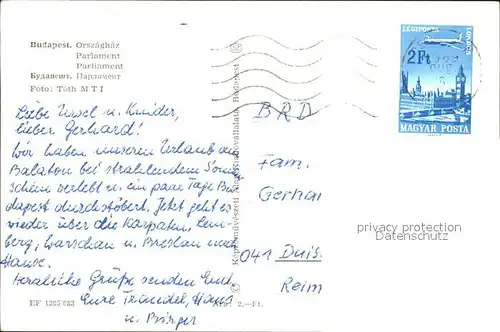 Budapest. Országház
Parlament
Parliament
Будапешт. Парламент
Foto: Tóth MTI
LÉGIPOSTA
LONDON
2Ft
MAGYAR POSTA
Liebe Ursel u. Kinder,
lieber Gerhard!
Wir haben unseren Urlaub am
Balaton bei strahlendem Sonnen
schein verlebt u. ein paar Tage Bu
dapest durchstöbert. Jetzt geht es
wieder über die Karpaten, Lem-
berg, Warschau u. Breslau nach
Hause.
Herzliche Grüße senden Euch
Eure Traudel, Hans
u.
BRD
Fam.
Gerhar
041 Duis
Reim
privacy protection
Datenschutz
Képzőművészeti Alap Kiadóvállalata, Budapest
2.-Ft.